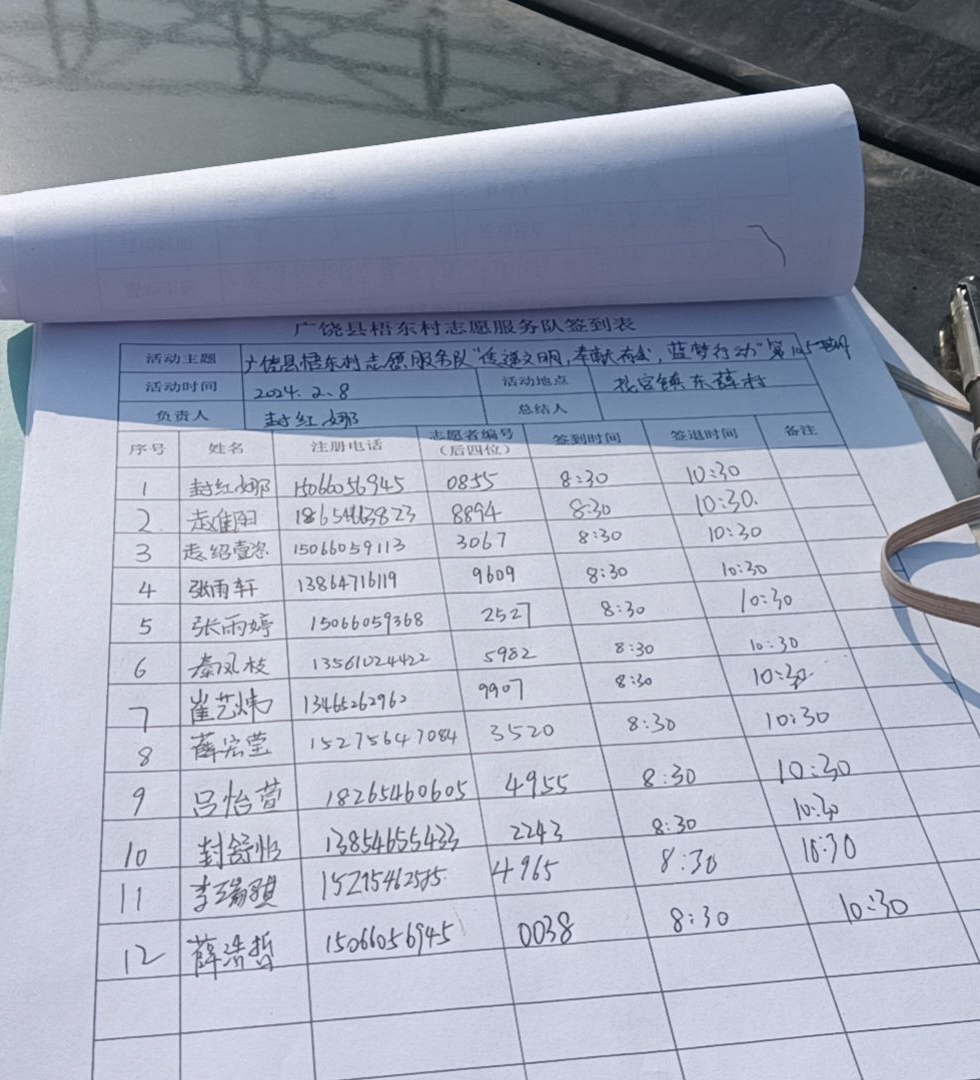 广饶县梧东村志愿服务队签到表
活动主题 广饶县梧东村志愿服务队"传递文明,奉献有我,蓝梦行动"第105
活动时间 2024.2.8 活动地点 花官镇东薛村
负责人 封红娜 总结人
序号 姓名 注册电话 志愿者编号(后四位) 签到时间 签退时间 备注
1 封红娜 15066056945 0855 8:30 10:30
2 8894 8:30 10:30.
3 15066059113 3067 8:30 10:30
4 张雨轩 13864716119 9609 8:30 10:30
5 张雨婷 15066059368 2527 8:30 10:30
6 秦凤枝 13561024422 5982 8:30 10:30
7 崔艺炜 13465262962 9907 8:30 10:30
8 薛宏莹 15275647084 3520 8:30 10:30
9 吕怡萱 18265460605 4955 8:30 10:30
10 封舒怡 13854655433 2243 8:30 10:30
11 李瑞骐 4965 8:30 10:30
12 薛浩哲 15066056945 0038 8:30 10:30